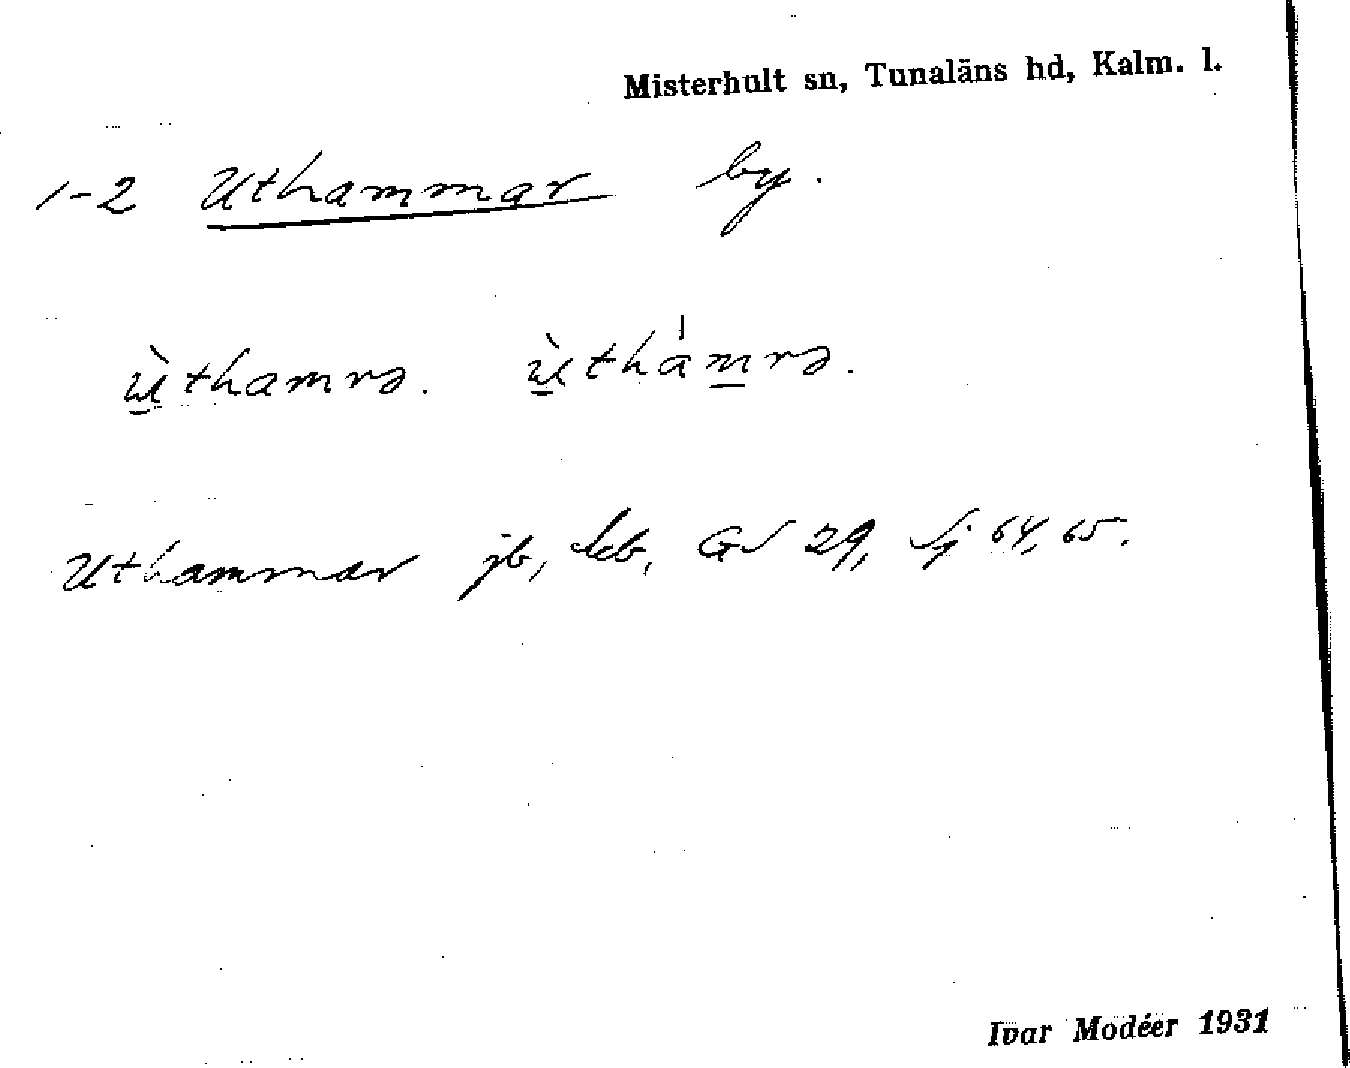 Misterhult sn, Tunaläns hd, Kalm. l.
1-2 Uthammar by.
ùthamrə. ùthámrə.
Uthammar jb, GS 29, Sj 64, 65.
Ivar Modéer 1931